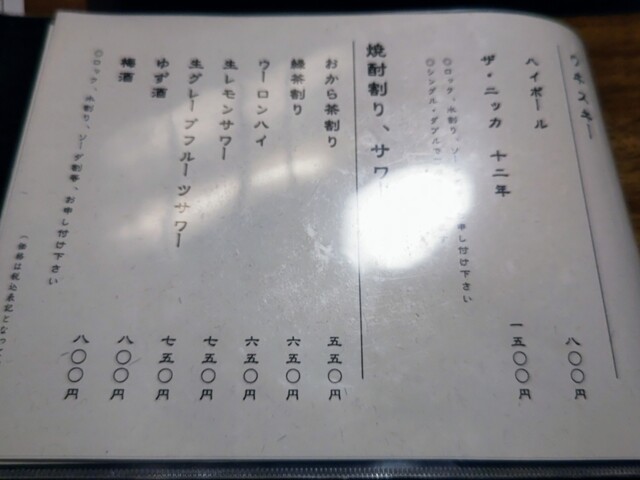 ウヰスキー
ハイボール 八〇〇円
ザ・ニッカ 十二年 一五〇〇円
◎ロック、水割り、ソー 申し付け下さい
◎シングル・ダブル
焼酎割り、サワー
おから茶割り 五五〇円
緑茶割り 六五〇円
ウーロンハイ 六五〇円
生レモンサワー 七五〇円
生グレープフルーツサワー 七五〇円
ゆず酒 八〇〇円
梅酒 八〇〇円
◎ロック、水割り、ソーダ割等、お申し付け下さい
(価格は税込表記となって